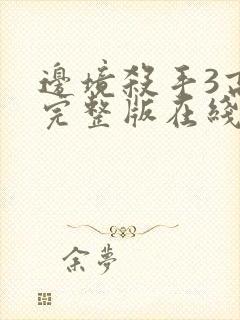 邊境殺手3高
完整版在綫
余夢